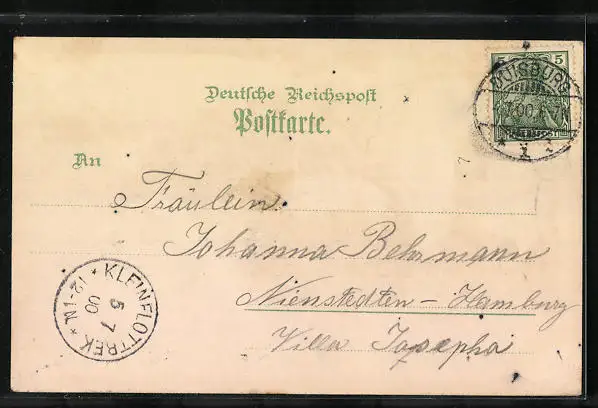 5
DUISBURG
7.00.
REICHSPOST
Deutsche Reichspost
Postkarte.
An
Fräulein
Johanna Behrmann
Nienstedten - Hamburg
Villa Josepha
* KLEINFLOTTBEK *
5 7
00
12-1N